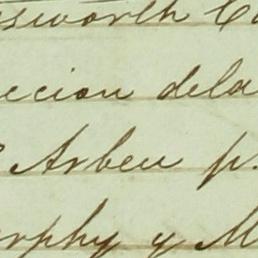 sworth Co
ccion dela
Arbeu p.
rphy y M